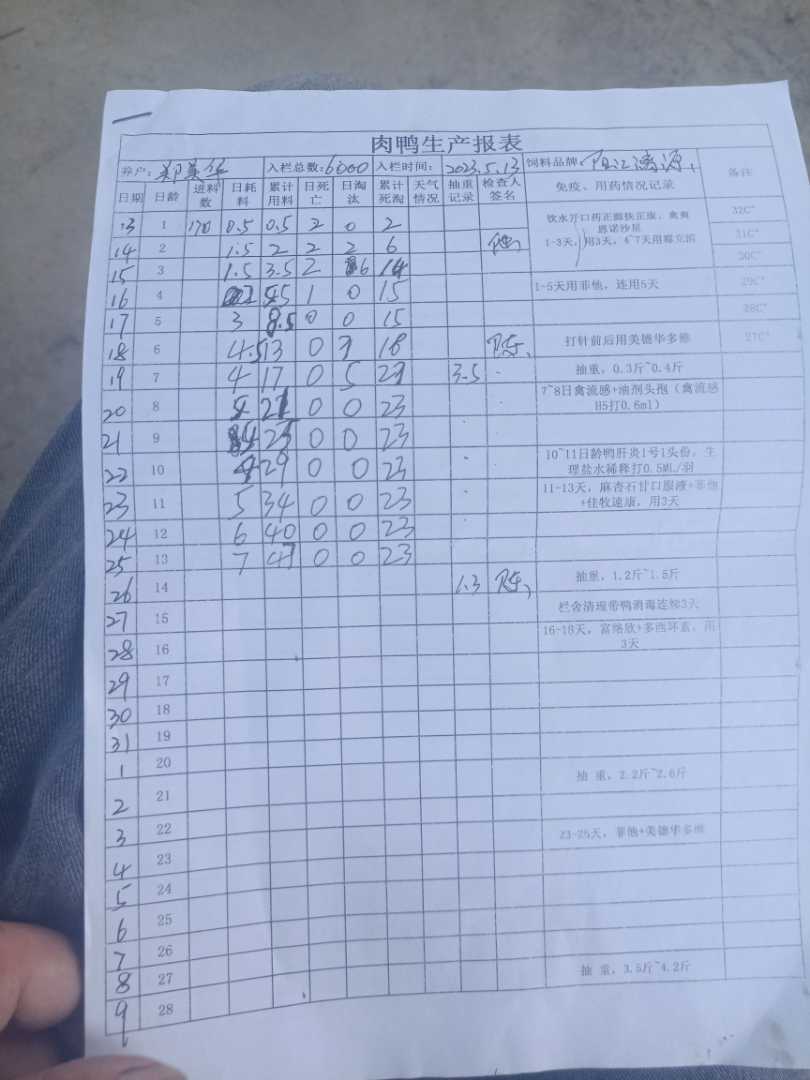 肉鸭生产报表
养户: 入栏总数:6000 入栏时间: 2023.5.13 饲料品牌 阳江 源
日期 日龄 进料数 日耗料 累计用料 日死亡 日淘汰 累计死淘 天气情况 抽重记录 检查人签名 免疫、用药情况记录 备注
13 1 170 0.5 0.5 2 0 2 饮水开口药正 康，禽爽 32C°
恩诺沙星
14 2 1.5 2 2 2 6 1-3天，用3天，4~7天用 31C°
15 3 1.5 3.5 2 6 14 30C°
16 4 2 5 1 0 15 1-5天用菲他，连用5天 29C°
17 5 3 8.5 0 0 15 28C°
18 6 4.5 13 0 3 18 打针前后用美德华多维 27C°
19 7 4 17 0 5 23 3.5 抽重，0.3斤~0.4斤
20 8 4 21 0 0 23 7~8日禽流感+油剂头孢（禽流感
H5打0.6ml）
21 9 4 25 0 0 23
22 10 4 29 0 0 23 10~11日龄鸭肝炎1号1头份，生
理盐水稀释打0.5ML/羽
23 11 5 34 0 0 23 11-13天，麻杏石甘口服液+菲他
+佳牧速康，用3天
24 12 6 40 0 0 23
25 13 7 47 0 0 23
26 14 1.3 抽重，1.2斤~1.5斤
27 15 栏舍清理带鸭消毒连续3天
28 16 16-18天，富络欣+多西环素，用
3天
29 17
30 18
31 19
1 20
2 21 抽 重，2.2斤~2.6斤
3 22
4 23 23-25天，菲他+美德华多维
5 24
6 25
7 26
8 27 抽 重，3.5斤~4.2斤
9 28